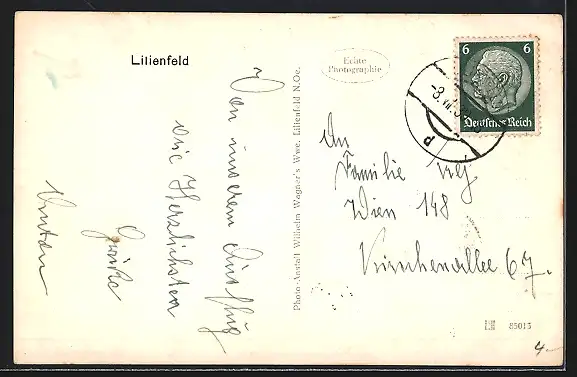 Lilienfeld
Von unserem Ausflug
die Herzlichsten
Grüße
Photo-Anstalt Wilhelm Wagner's Wwe. Lilienfeld N.Oe.
Echte
Photographie
6 6
Deutsches Reich
-8.VII.3
P
An
Familie
Wien 148
67.
85015
4.-